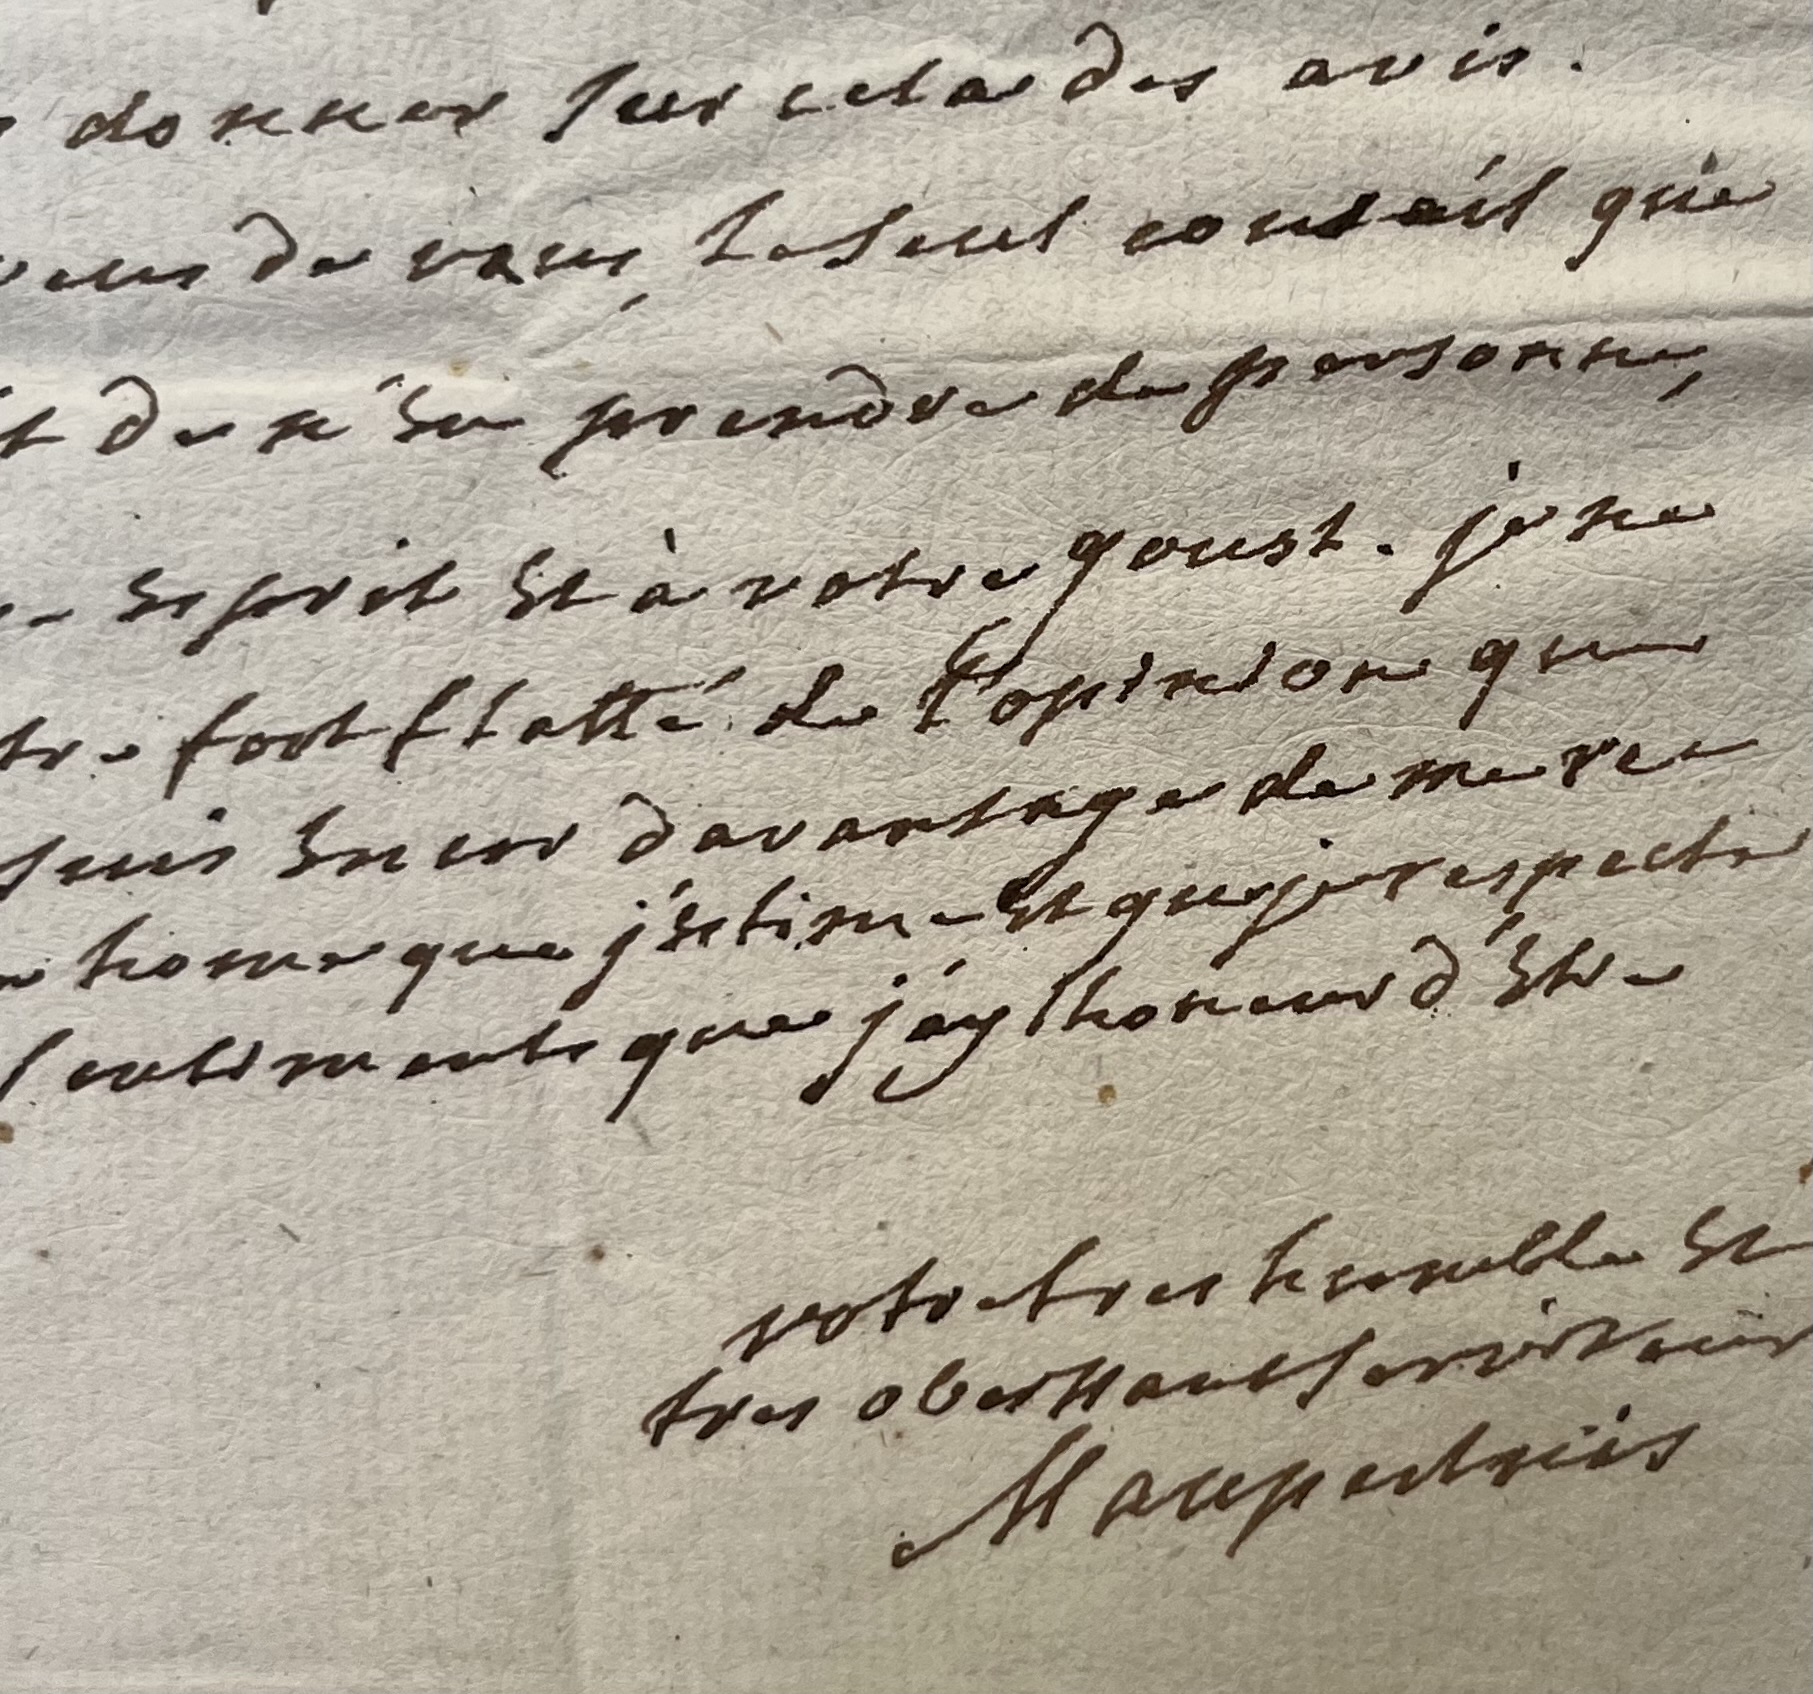 donner sur cela des avis.
de vous, le seul conseil que
de n'en prendre de personne,
esprit est à votre goust. je ne
fort flatté de l'opinion que
suis encor davantage de me ve
home que j'estime et que je respecte
sentiments que j'ay lhoneur d'être
votre tres humble et
tres obeissant serviteur
Maupertuis